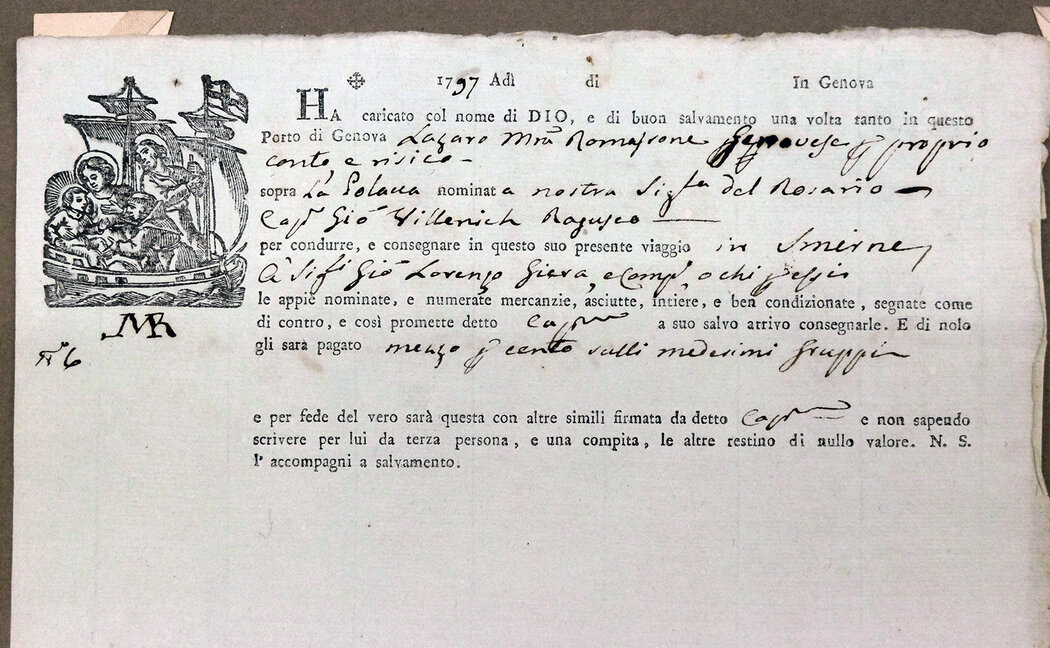 1797 Adì di In Genova
HA caricato col nome di DIO, e di buon salvamento una volta tanto in questo
Porto di Genova Lazaro Mra Romairone Genovese p proprio
conto e risico
sopra La Polacca nominata nostra Sigra del Rosario
Capn Gio Raguseo
per condurre, e consegnare in questo suo presente viaggio in Smirne
A Sigi Gio Lorenzo Giera, e Comp o chi p essi
le appiè nominate, e numerate mercanzie, asciutte, intiere, e ben condizionate, segnate come
di contro, e così promette detto Capn a suo salvo arrivo consegnarle. E di nolo
gli sarà pagato mezzo p cento sulli medesimi Gruppi
MR
N 6
e per fede del vero sarà questa con altre simili firmata da detto Capn e non sapendo
scrivere per lui da terza persona, e una compita, le altre restino di nullo valore. N. S.
l' accompagni a salvamento.